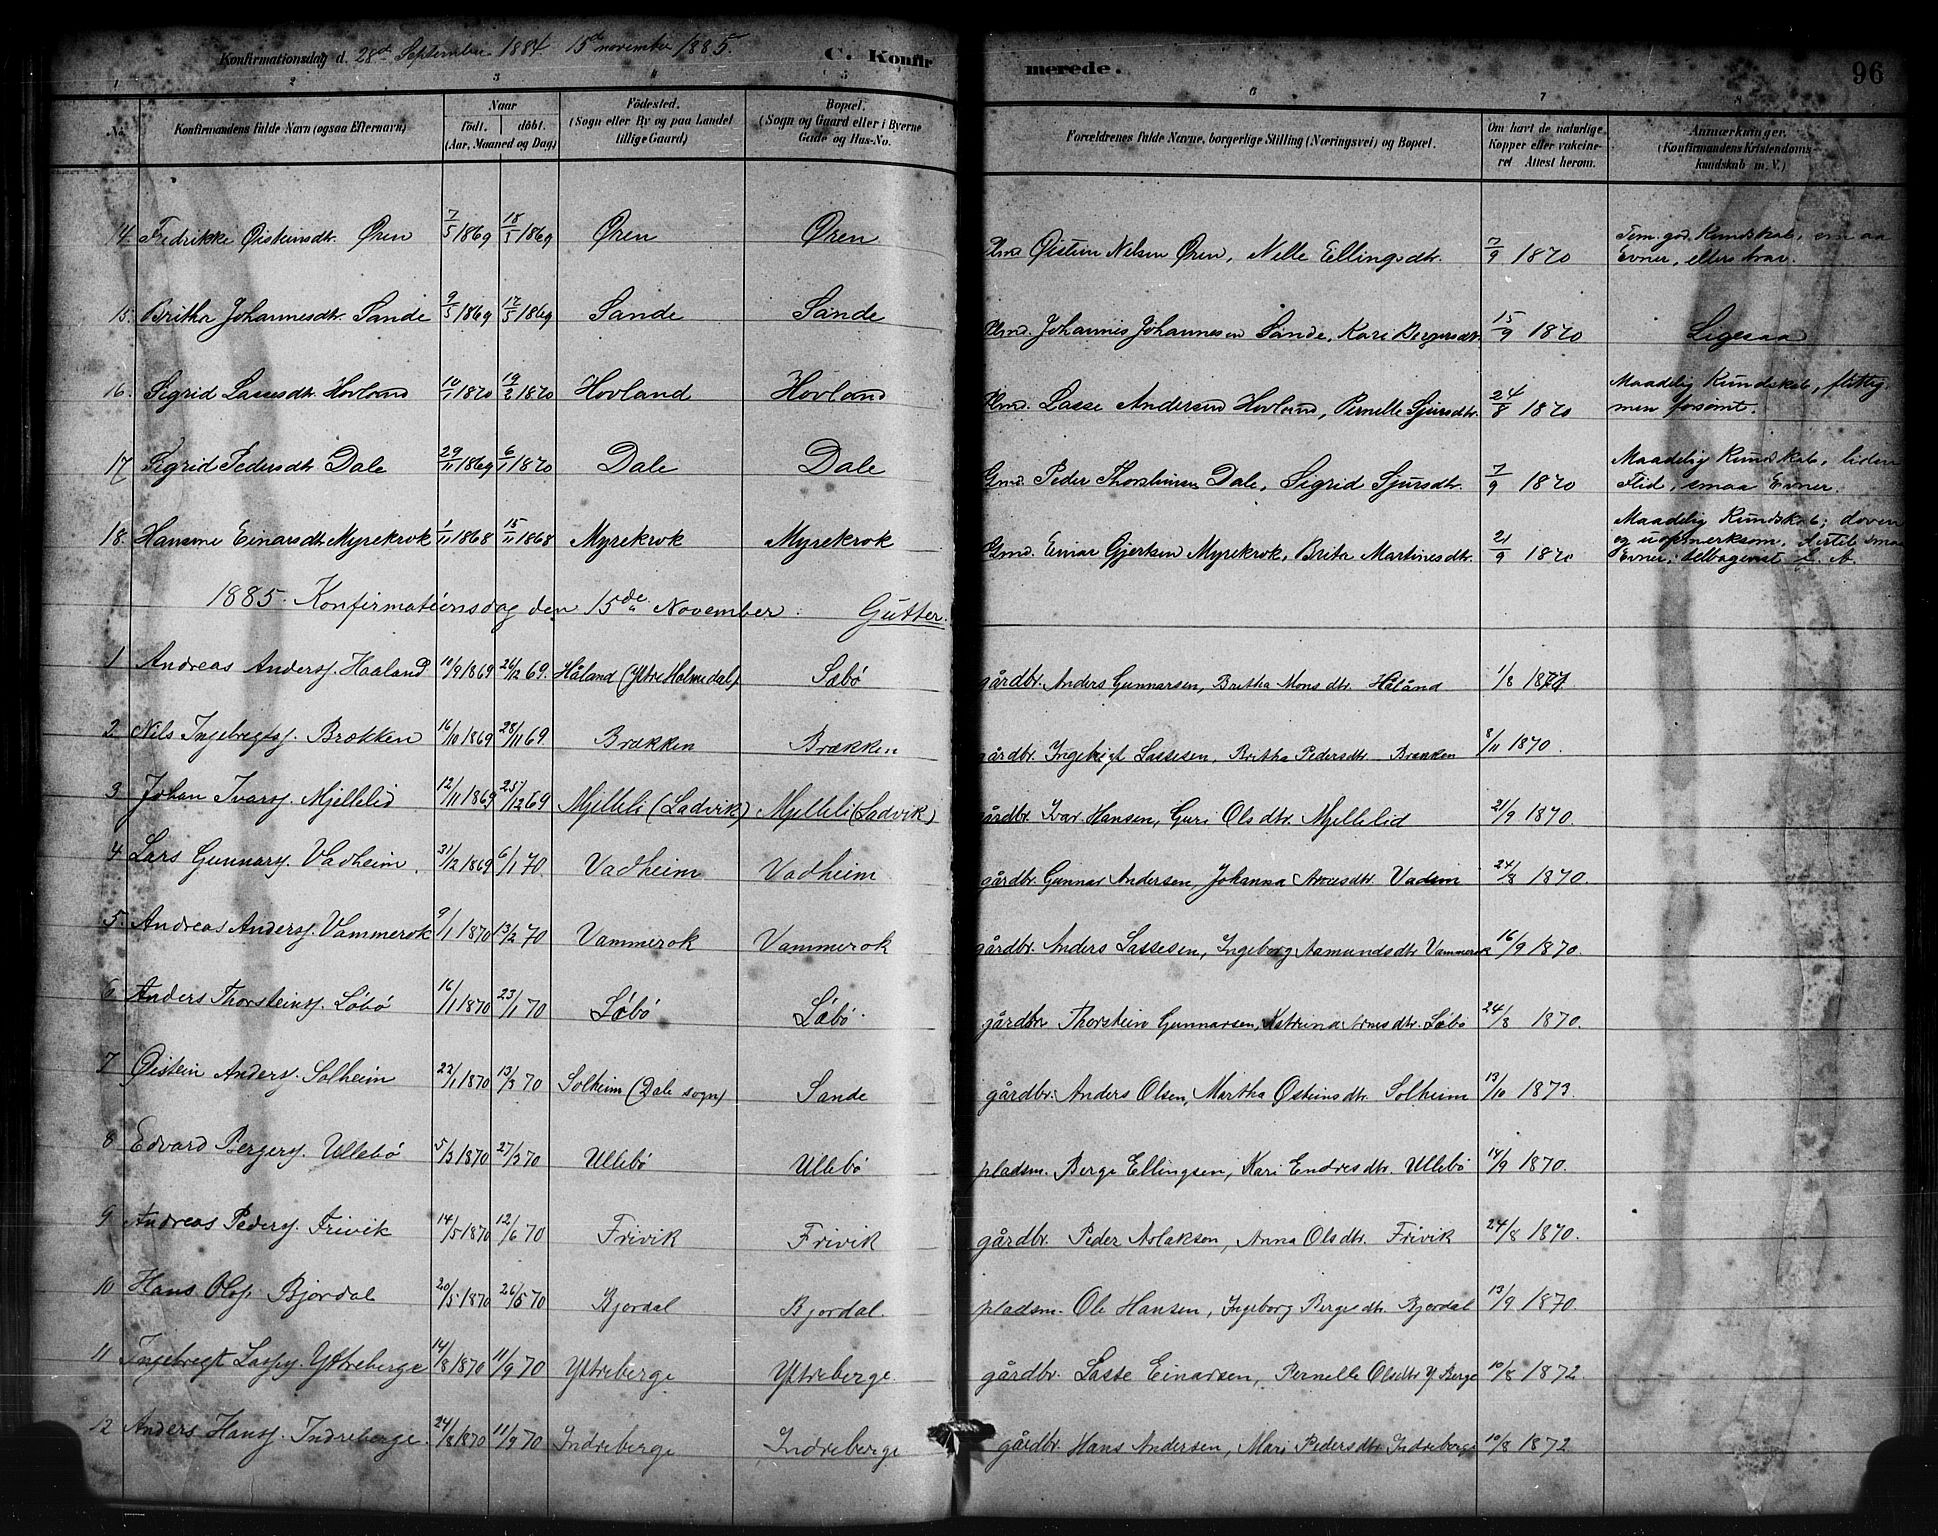 Konfirmationsdag d. 28de September 1884. 15de november 1885. C. Konfirmerede. 96
1 2 3 4 5 6 7 8
No. Konfirmandens fulde Navn (ogsaa Efternavn) Naar födt. döbt. (Aar, Maaned og Dag) Födested. (Sogn eller By og paa Landet tillige Gaard) Bopæl. (Sogn og Gaard eller i Byerne Gade og Hus-No. Forældrenes fulde Navne, borgerlige Stilling (Næringsvei) og Bopæl. Om havt de naturlige Kopper eller vakcineret Attest herom. Anmærkninger. (Konfirmandens Kristendomskundskab m. V.)
14. Fredrikke Øisteinsdtr. Øren 7/5 1869 18/5 1869 Øren Øren Plmd. Øistein Nelsen Øren, Nille Ellingsdtr. 7/9 1870 Tem. god Kundskab, smaa Evner, ellers brav.
15. Britha Johannesdtr. Sande 9/5 1869 17/5 1869 Sande Sande Plmd. Johannes Johannesen Sande, Kari Bergersdtr. 15/9 1870 Ligesaa
16. Sigrid Lassesdtr. Hovland 10/1 1870 19/2 1870 Hovland Hovland Plmd. Lasse Andersen Hovland, Pernelle Sjursdtr. 24/8 1870 Maadelig Kundskab, flittig men forsömt.
17 Sigrid Pedersdtr. Dale 29/11 1869 6/1 1870 Dale Dale Gmd. Peder Thorsteinsen Dale, Sigrid Sjursdtr. 7/9 1870 Maadelig Kundskab, liden Flid, smaa Evner.
18. Hansine Einarsdtr. Myrekrok 1/11 1868 15/11 1868 Myrekrok Myrekrok Gmd. Einar Gjertsen Myrekrok, Brita Martinesdtr. 21/9 1870 Maadelig Kundskab; doven og uopmerksom, smaa Evner; tilbagevist f. A.
1885. Konfirmationsdag den 15de November. Gutter.
1 Andreas Anders. Haaland 10/9 1869 26/12 69. Håland (Ytre Holmedal) Sæbø gårdbr. Anders Gunnarsen, Britha Monsdtr. Håland 1/8
2 Nils Ingebrigts. Brækken 16/10 1869 28/11 69 Brækken Brækken gårdbr. Ingebrigt Lassesen, Britha Pedersdtr. Brækken 8/11 1870.
3 Johan Ivars. Mjellelid 12/11 1869 25/12 69 Mjelleli (Ladvik) Mjelleli (Ladvik) gårdbr. Ivar Hansen, Guri Olsdtr. Mjellelid 21/9 1870.
4 Lars Gunnars. Vadheim. 31/12 1869 6/1 70 Vadheim Vadheim gårdbr. Gunnar Andersen, Johanna Vadem 24/8 1870.
5. Andreas Anders. Vammerok 9/1 1870 13/2 70 Vammerok Vammerok gårdbr. Anders Lassesen, Ingeborg Aamundsdtr. Vammerok 16/9 1870.
6 Anders Thorsteins. Sæbø 16/1 1870 23/1 70 Sæbø Sæbø. gårdbr. Thorstein Gunnarsen, Katrina Sæbø 24/8 1870.
7 Øistein Anders. Solheim 22/1 1870 13/3 70 Solheim (Dale sogn) Sande gårdbr. Anders Olsen, Martha Østeinsdtr. Solheim 13/10 1873.
8 Edvard Bergers. Ullebø 5/3 1870 27/3 70 Ullebø Ullebø pladsm. Berge Ellingsen, Kari Endresdtr. Ullebø 14/9 1870.
9 Andreas Peders. Frivik 14/5 1870 12/6 70 Frivik Frivik gårdbr. Peder Aslaksen, Anna Olsdtr. Frivik 24/8 1870.
10 Hans Ols. Bjordal 20/5 1870 26/5 70 Bjordal Bjordal. pladsm. Ole Hansen, Ingeborg Bergesdtr. Bjordal 13/9 1870.
11 Ingebregt Lasses. Yttreberge 14/8 1870 11/9 70 Yttreberge Yttreberge. gårdbr. Lasse Einarsen, Pernelle Olsdtr. Y. Berge 10/8 1872.
12 Anders Hans. Indreberge. 24/8 1870 11/9 70 Indreberge Indreberge gårdbr. Hans Andersen, Mari Pedersdtr. Indreberge 10/8 1872